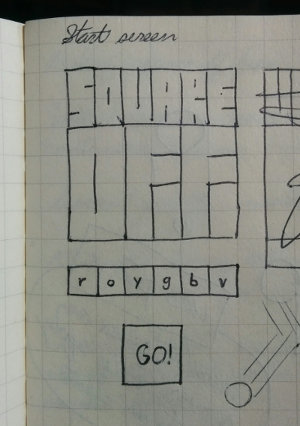 Start screen
SQUARE
OFF
r o y g b v
GO!